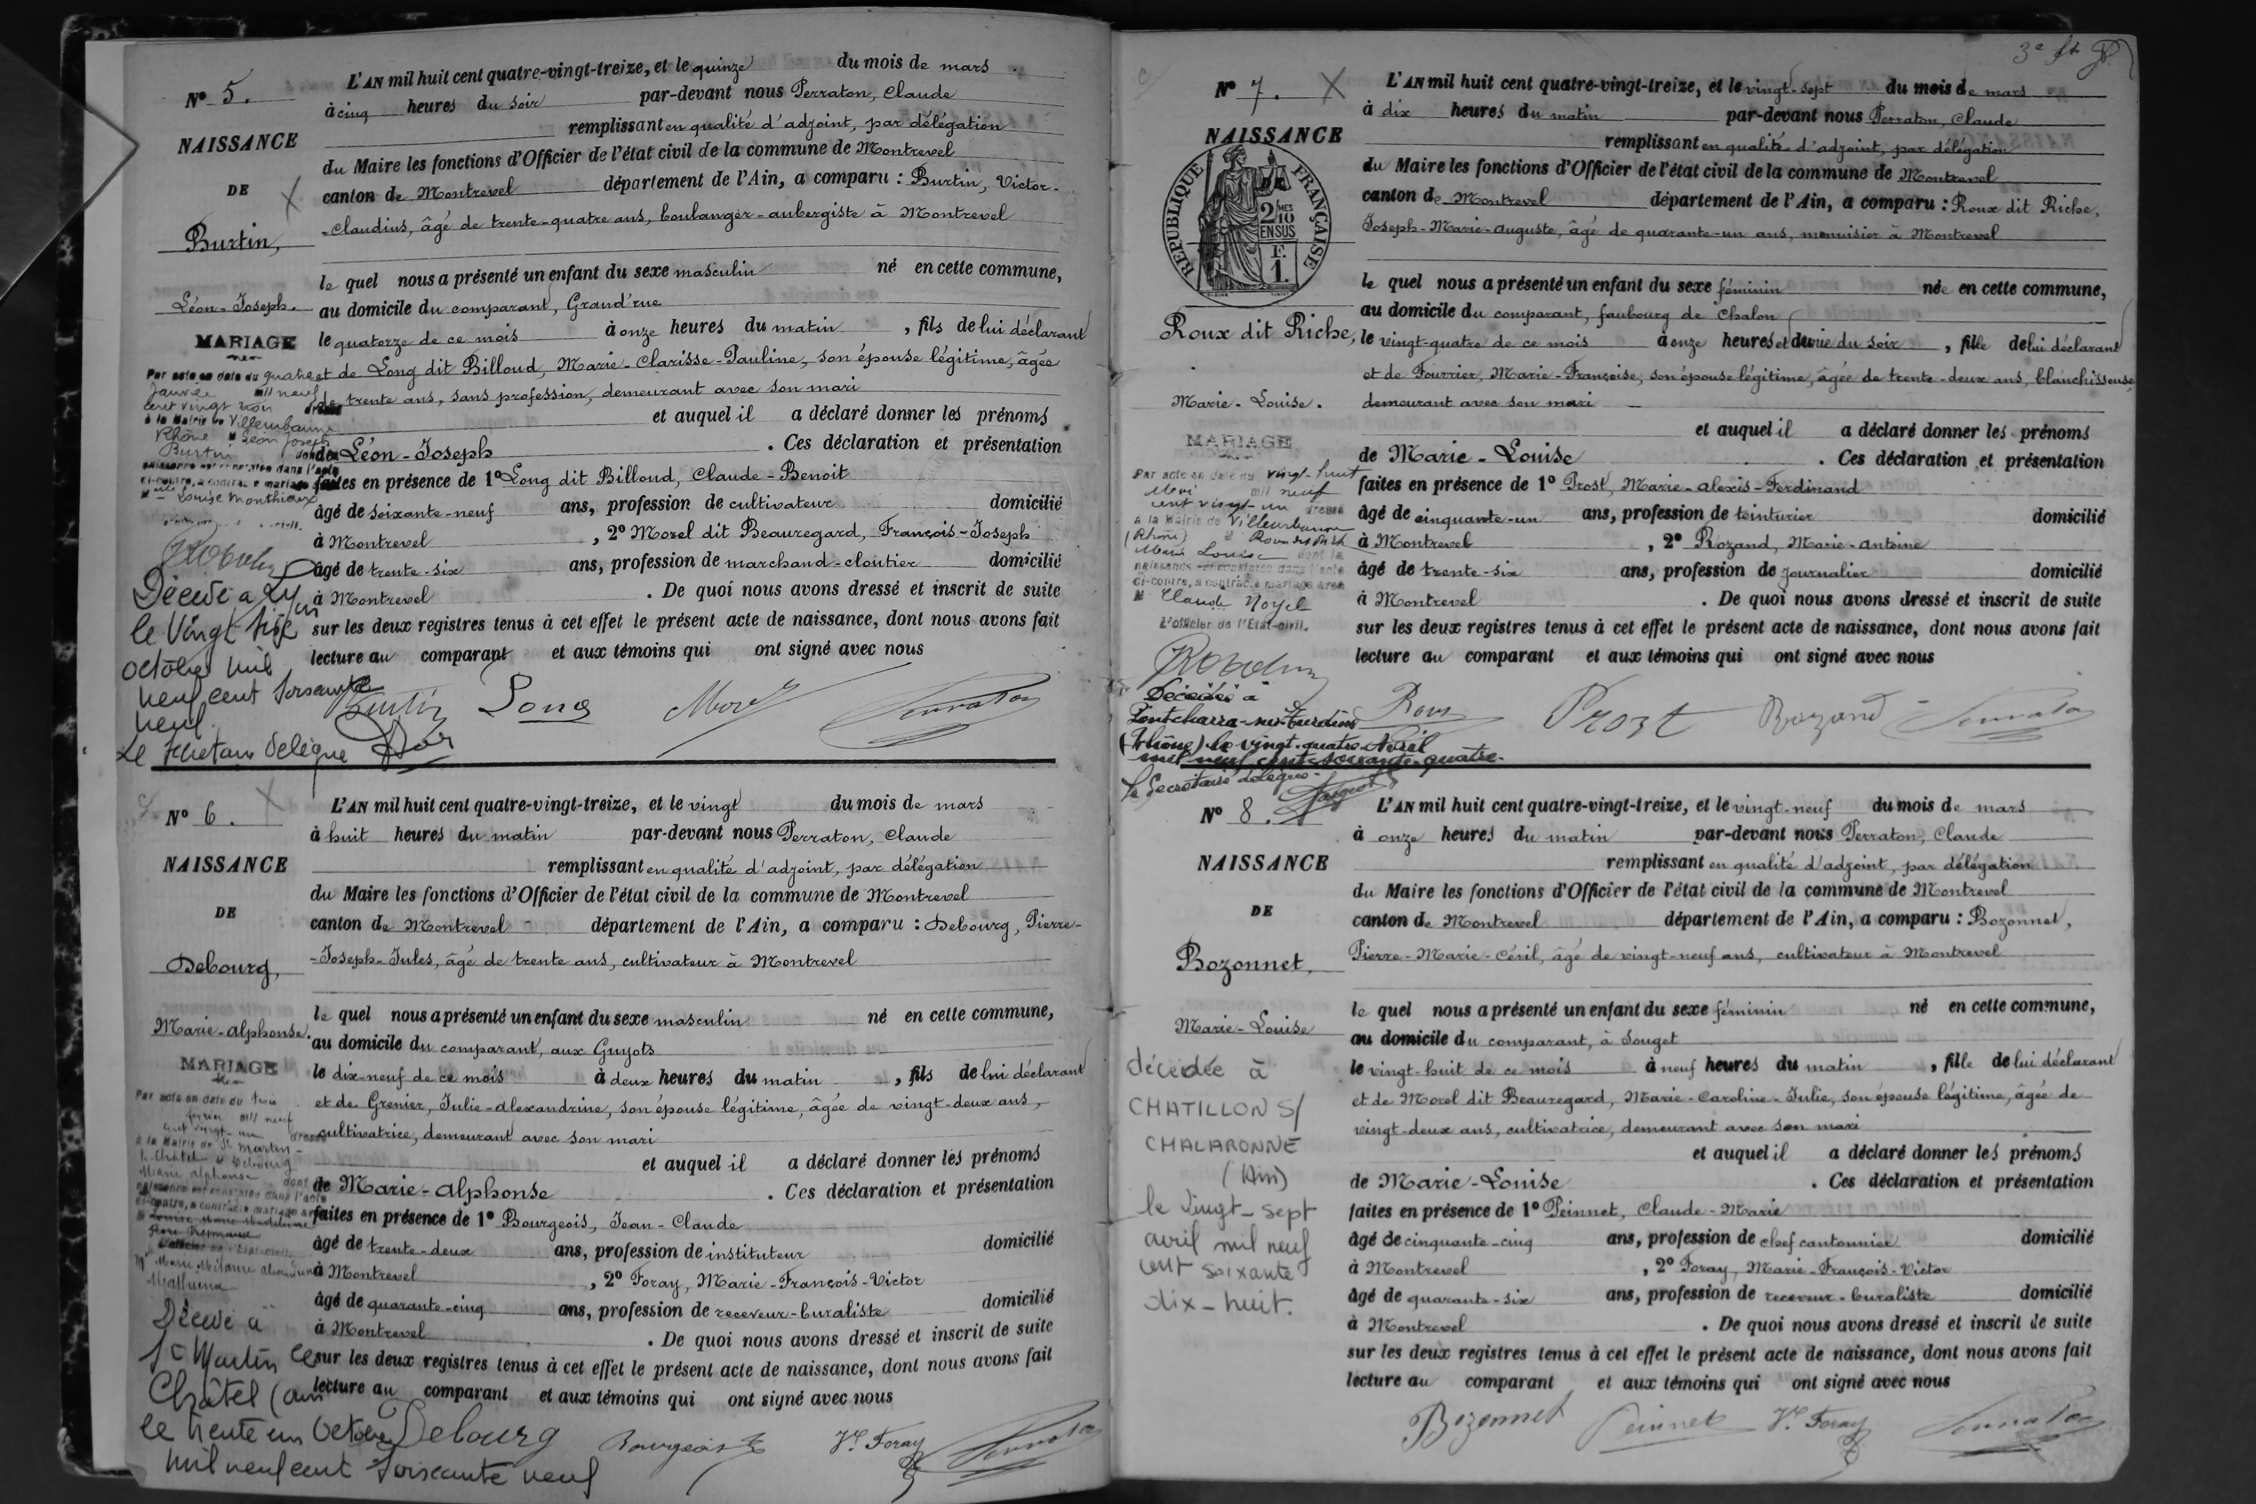 N° 5.
NAISSANCE
DE
Burtin,
Léon-Joseph.
L'AN mil huit cent quatre-vingt-treize, et le quinze du mois de mars
à cinq heures du soir par-devant nous Perraton, Claude
remplissant en qualité d'adjoint, par délégation
du Maire les fonctions d'Officier de l'état civil de la commune de Montrevel
canton de Montrevel département de l'Ain, a comparu : Burtin, Victor-
-Claudius, âgé de trente-quatre ans, boulanger-aubergiste à Montrevel
le quel nous a présenté un enfant du sexe masculin né en cette commune,
au domicile du comparant, Grand'rue
le quatorze de ce mois à onze heures du matin, fils de lui déclarant
et de Long dit Billoud, Marie-Clarisse-Pauline, son épouse légitime, âgée
de trente ans, sans profession, demeurant avec son mari
et auquel il a déclaré donner les prénoms
de Léon-Joseph. Ces déclaration et présentation
faites en présence de 1° Long dit Billoud, Claude-Benoit
âgé de soixante-neuf ans, profession de cultivateur domicilié
à Montrevel, 2° Morel dit Beauregard, François-Joseph
âgé de trente-six ans, profession de marchand-cloutier domicilié
à Montrevel. De quoi nous avons dressé et inscrit de suite
sur les deux registres tenus à cet effet le présent acte de naissance, dont nous avons fait
lecture au comparant et aux témoins qui ont signé avec nous
Burtin Long Morel Perraton
MARIAGE
Par acte en date du quatre
Janvier mil neuf
cent vingt trois dressé
à la Mairie de Villeurbanne
Rhône M Léon Joseph
Burtin dont la
naissance est constatée dans l'acte
ci-contre, a contracté mariage avec
Mlle Louise Monthioux
Décédé à Lyon
le Vingt six
octobre mil
neuf cent soixante
neuf.
Le secrétaire délégué
N° 6.
NAISSANCE
DE
Debourg,
Marie-Alphonse.
L'AN mil huit cent quatre-vingt-treize, et le vingt du mois de mars
à huit heures du matin par-devant nous Perraton, Claude
remplissant en qualité d'adjoint, par délégation
du Maire les fonctions d'Officier de l'état civil de la commune de Montrevel
canton de Montrevel département de l'Ain, a comparu : Debourg, Pierre-
-Joseph-Jules, âgé de trente ans, cultivateur à Montrevel
le quel nous a présenté un enfant du sexe masculin né en cette commune,
au domicile du comparant, aux Guyots
le dix-neuf de ce mois à deux heures du matin, fils de lui déclarant
et de Grenier, Julie-Alexandrine, son épouse légitime, âgée de vingt-deux ans,
cultivatrice, demeurant avec son mari
et auquel il a déclaré donner les prénoms
de Marie-Alphonse. Ces déclaration et présentation
faites en présence de 1° Bourgeois, Jean-Claude
âgé de trente-deux ans, profession de instituteur domicilié
à Montrevel, 2° Foray, Marie-François-Victor
âgé de quarante-cinq ans, profession de receveur-buraliste domicilié
à Montrevel. De quoi nous avons dressé et inscrit de suite
sur les deux registres tenus à cet effet le présent acte de naissance, dont nous avons fait
lecture au comparant et aux témoins qui ont signé avec nous
Debourg Bourgeois Vr Foray Perraton
MARIAGE
Par acte en date du trois
février mil neuf
cent vingt-un dressé
à la Mairie de St Martin-
le Châtel M Debourg
Marie Alphonse dont la
naissance est constatée dans l'acte
ci-contre, a contracté mariage avec
Décédé à
St Martin le
Châtel (ain)
le trente un Octobre
mil neuf cent soixante neuf
3e ft
N° 7.
NAISSANCE
RÉPUBLIQUE FRANÇAISE
2 MES
10
EN SUS
F.
1.
Roux dit Riche,
Marie-Louise.
L'AN mil huit cent quatre-vingt-treize, et le vingt-sept du mois de mars
à dix heures du matin par-devant nous Perraton, Claude
remplissant en qualité d'adjoint, par délégation
du Maire les fonctions d'Officier de l'état civil de la commune de Montrevel
canton de Montrevel département de l'Ain, a comparu : Roux dit Riche,
Joseph-Marie-Auguste, âgé de quarante-un ans, menuisier à Montrevel
le quel nous a présenté un enfant du sexe féminin née en cette commune,
au domicile du comparant, faubourg de Chalon
le vingt-quatre de ce mois à onze heures et demie du soir, fille de lui déclarant
et de Fourrier, Marie-Françoise, son épouse légitime, âgée de trente-deux ans, blanchisseuse,
demeurant avec son mari
et auquel il a déclaré donner les prénoms
de Marie-Louise. Ces déclaration et présentation
faites en présence de 1° Prost, Marie-Alexis-Ferdinand
âgé de cinquante-un ans, profession de teinturier domicilié
à Montrevel, 2° Rozand, Marie-Antoine
âgé de trente-six ans, profession de journalier domicilié
à Montrevel. De quoi nous avons dressé et inscrit de suite
sur les deux registres tenus à cet effet le présent acte de naissance, dont nous avons fait
lecture au comparant et aux témoins qui ont signé avec nous
Roux Prost Rozand Perraton
MARIAGE
Par acte en date du vingt-huit
mil neuf
cent vingt-un dressé
à la Mairie de Villeurbanne
(Rhône) Roux dit Riche
Marie Louise dont la
naissance est constatée dans l'acte
ci-contre, a contracté mariage avec
M Claude Noyel
L'officier de l'État-civil.
Décédée à
Pontcharra-sur-Turdine
(Rhône) le vingt-quatre Avril
mil neuf cent soixante-quatre.
Le Secrétaire délégué.
N° 8.
NAISSANCE
DE
Bozonnet,
Marie-Louise
L'AN mil huit cent quatre-vingt-treize, et le vingt-neuf du mois de mars
à onze heures du matin par-devant nous Perraton, Claude
remplissant en qualité d'adjoint, par délégation
du Maire les fonctions d'Officier de l'état civil de la commune de Montrevel
canton de Montrevel département de l'Ain, a comparu : Bozonnet,
Pierre-Marie-Cénil, âgé de vingt-neuf ans, cultivateur à Montrevel
le quel nous a présenté un enfant du sexe féminin né en cette commune,
au domicile du comparant, à Souget
le vingt-huit de ce mois à neuf heures du matin, fille de lui déclarant
et de Morel dit Beauregard, Marie-Caroline-Julie, son épouse légitime, âgée de
vingt-deux ans, cultivatrice, demeurant avec son mari
et auquel il a déclaré donner les prénoms
de Marie-Louise. Ces déclaration et présentation
faites en présence de 1° Peinnet, Claude-Marie
âgé de cinquante-cinq ans, profession de chef cantonnier domicilié
à Montrevel, 2° Foray, Marie-François-Victor
âgé de quarante-six ans, profession de receveur-buraliste domicilié
à Montrevel. De quoi nous avons dressé et inscrit de suite
sur les deux registres tenus à cet effet le présent acte de naissance, dont nous avons fait
lecture au comparant et aux témoins qui ont signé avec nous
Bozonnet Peinnet Vr Foray Perraton
décédée à
CHATILLON S/
CHALARONNE
(Ain)
le vingt-sept
avril mil neuf
cent soixante
dix-huit.